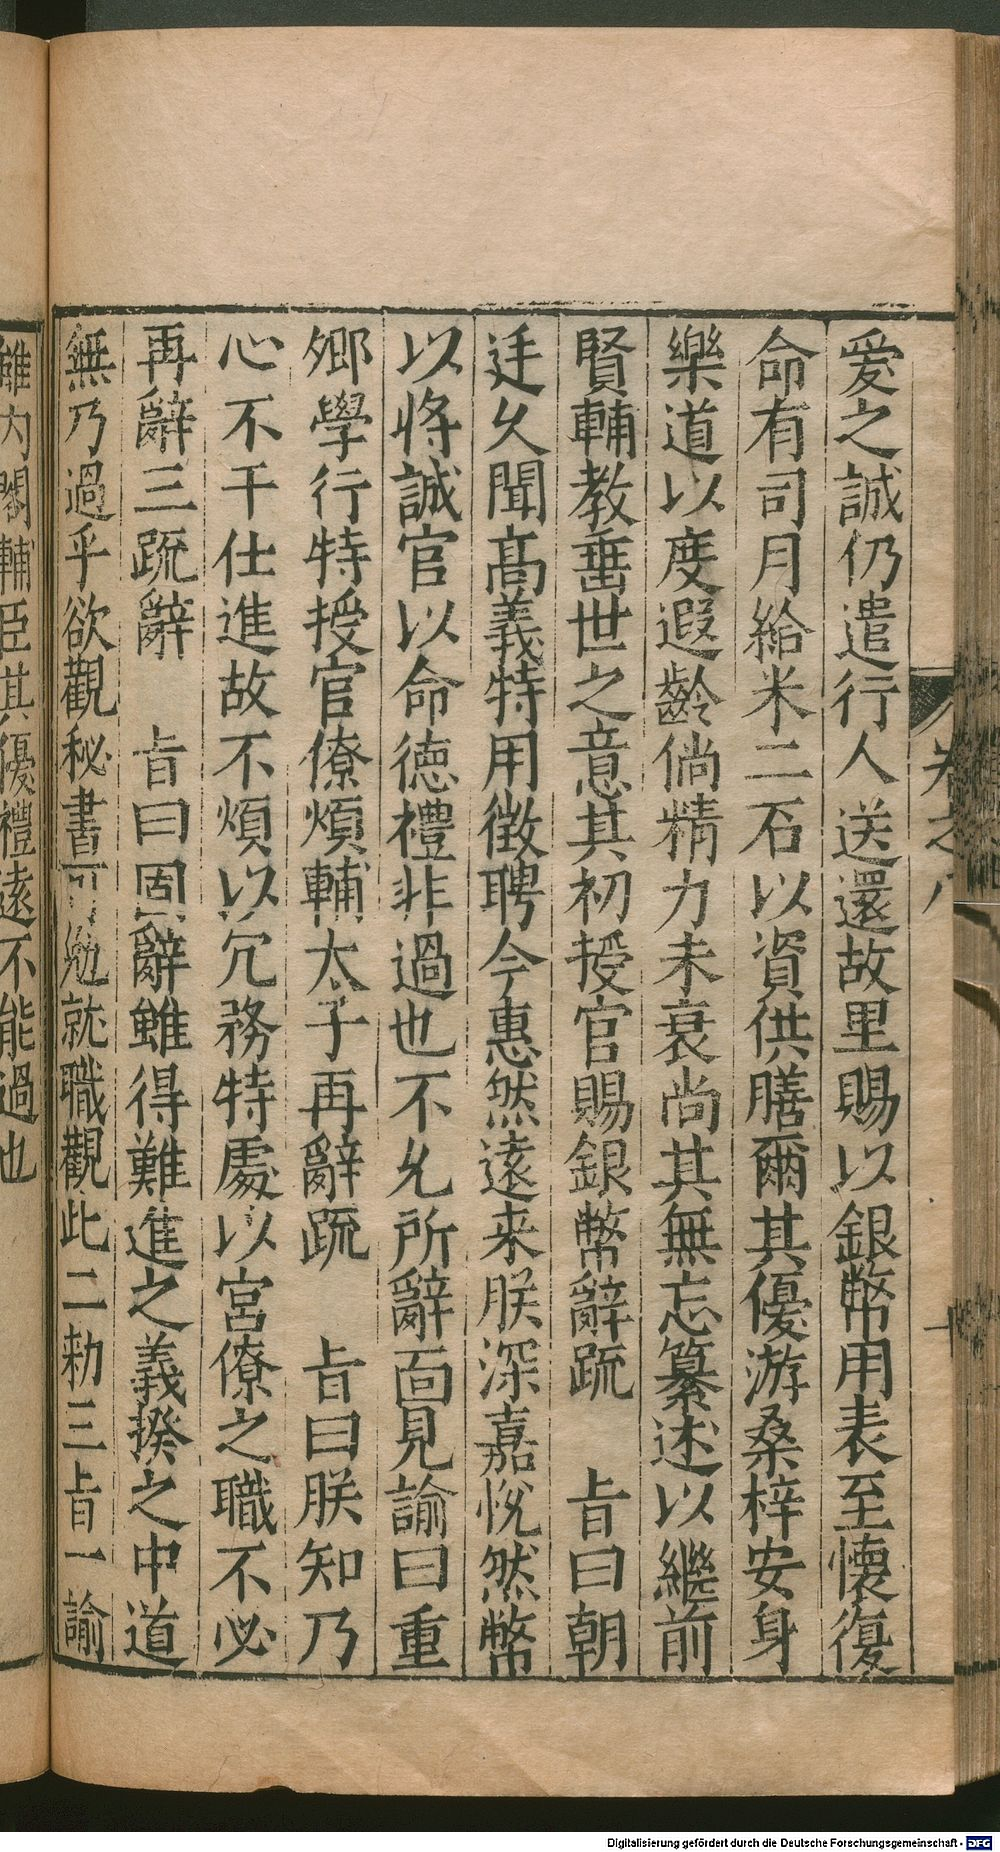 卷之八
十
愛之誠仍遣行人送還故里賜以銀幣用表至懷復
命有司月給米二石以資供膳爾其優游桑梓安身
樂道以度遐齡倘精力未衰尚其無忘纂述以繼前
賢輔教垂世之意其初授官賜銀幣辭疏　旨曰朝
廷久聞高義特用徵聘今惠然遠来朕深嘉悅然幣
以將誠官以命德禮非過也不允所辭面見諭曰重
卿學行特授官僚煩輔太子再辭疏　旨曰朕知乃
心不干仕進故不煩以冗務特處以宮僚之職不必
再辭三疏辭　旨曰固辭雖得難進之義揆之中道
無乃過乎欲觀秘書可勉就職觀此二勑三旨一諭
雖內閣輔臣其優禮遠不能過也
Digitalisierung gefördert durch die Deutsche Forschungsgemeinschaft - DFG